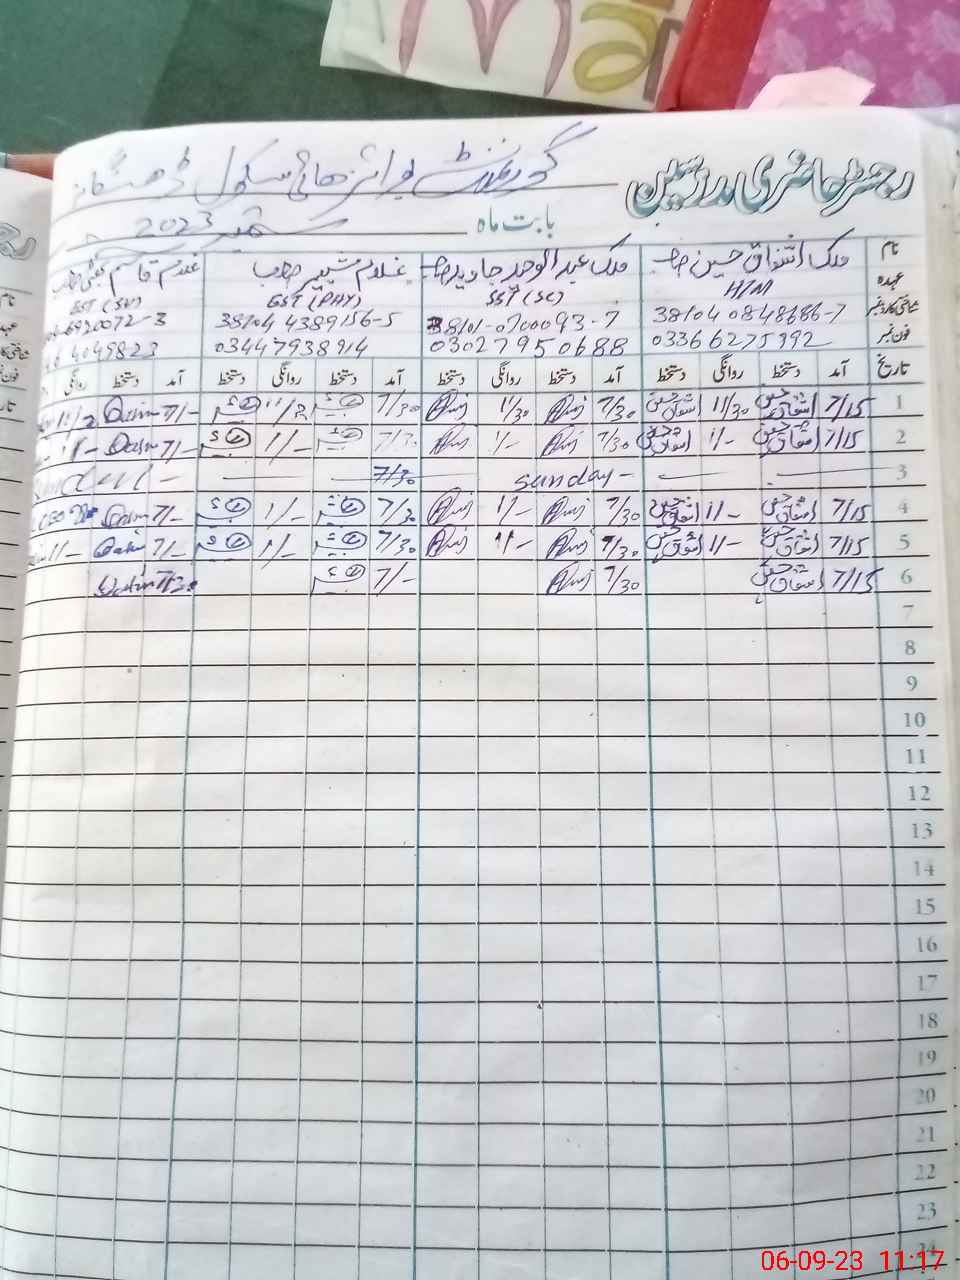 Ma
رجسٹر حاضری مدرسین
گورنمنٹ بوائز ہائی سکول
بابت ماہ ستمبر 2023
نام ملک اشفاق حسین صاحب ملک عبدالوحید جاوید صاحب غلام شبیر صاحب غلام قاسم
عہدہ HTM SST (SC) EST (PHY) EST (SV)
شناختی کارڈ نمبر 38104 0848686-7 38101-0700093-7 38104 4389156-5 6920072-3
فون نمبر 03366275992 03027950688 03447938914 4049823
تاریخ آمد دستخط روانگی دستخط آمد دستخط روانگی دستخط آمد دستخط روانگی دستخط آمد دستخط روانگی
1 7/15 اشفاق حسین 11/30 اشفاق حسین 7/30 11/30 7/30 7/- Qasim
2 7/15 اشفاق حسین 1/- اشفاق حسین 7/30 1/- 7/30 1/- 7/- Qasim 1/-
3 Sunday 7/30
4 7/15 اشفاق حسین 1/- اشفاق حسین 7/30 1/- 7/30 1/- 7/- Qasim
5 7/15 اشفاق حسین 1/- اشفاق حسین 7/30 1/- 7/30 1/- 7/- Qasim 1/-
6 7/15 اشفاق حسین 7/30 7/- 7/30 Qasim
7
8
9
10
11
12
13
14
15
16
17
18
19
20
21
22
23
24
06-09-23 11:17